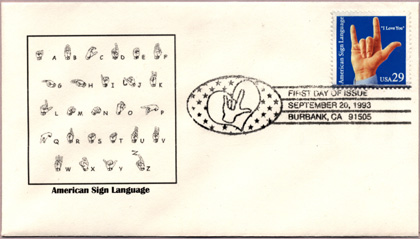 A B C D E F
G H I J K
L M N O P
Q R S T U V
W X Y Z
American Sign Language
American Sign Language
"I Love You"
USA 29
FIRST DAY OF ISSUE
SEPTEMBER 20, 1993
BURBANK, CA 91505